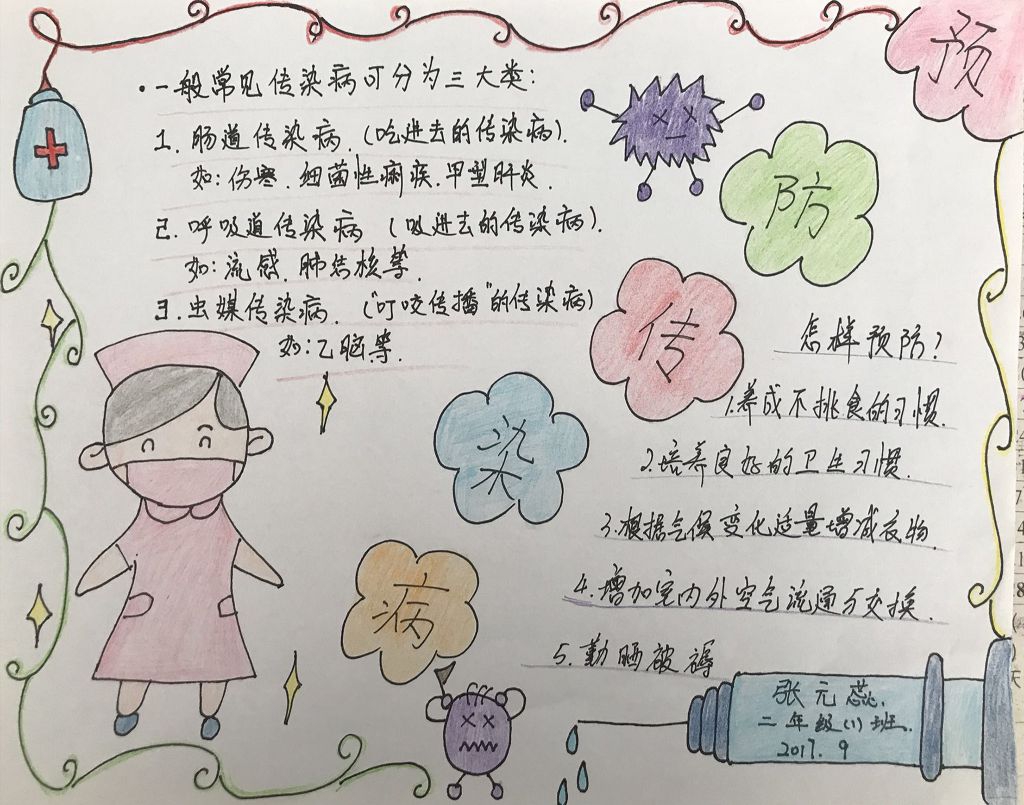 预
防
传
染
病
·一般常见传染病可分为三大类:
1.肠道传染病.(吃进去的传染病).
如:伤寒.细菌性痢疾.甲型肝炎.
2.呼吸道传染病(吸进去的传染病).
如:流感.肺结核等.
3.虫媒传染病.("叮咬传播"的传染病)
如:乙脑等.
怎样预防?
1.养成不挑食的习惯.
2.培养良好的卫生习惯.
3.根据气候变化适量增减衣物.
4.增加室内外空气流通与交换.
5.勤晒被褥
张元蕊.
二年级(1)班.
2017.9